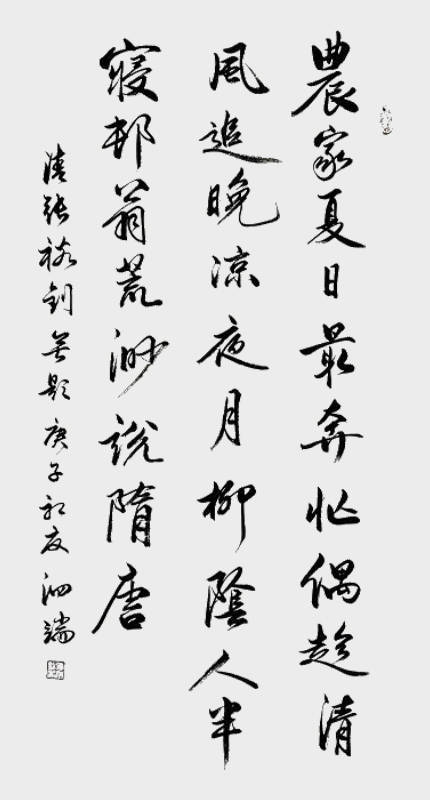 農家夏日最奔忙偶趁清
風追晚涼夜月柳蔭人半
寢邨翁荒渺說隋唐
清張裕釗無題庚子初夏泗端